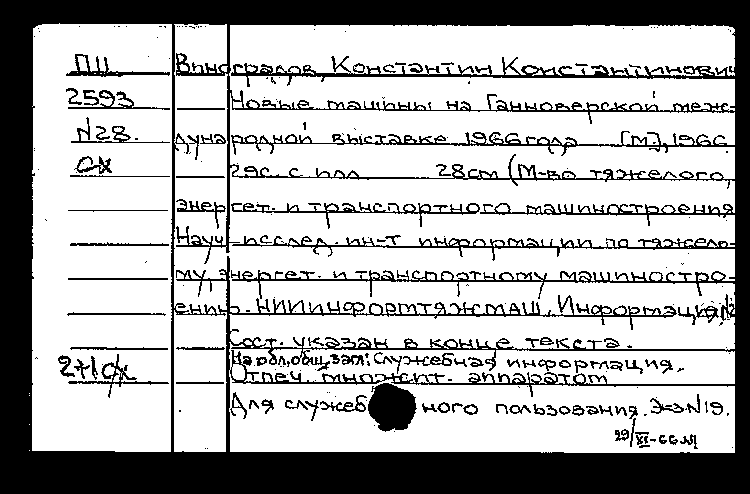 ПII Виноградов, Константин Константинович
2593 Новые машины на Ганноверской меж-
N28. дународной выставке 1966 года [М.], 1966
Ох 29с. с илл. 28см (М-во тяжелого,
энергет. и транспортного машиностроения
Науч.-исслед. ин-т информации по тяжело-
му, энергет. и транспортному машиностро-
ению. НИИИНФОРМТЯЖМАШ. Информация №2
Сост. указан в конце текста.
На обл. общ. заг.: Служебная информация.
2+1 Ох Отпеч. множит. аппаратом
Для служебного пользования. Экз N19.
29/XI-66